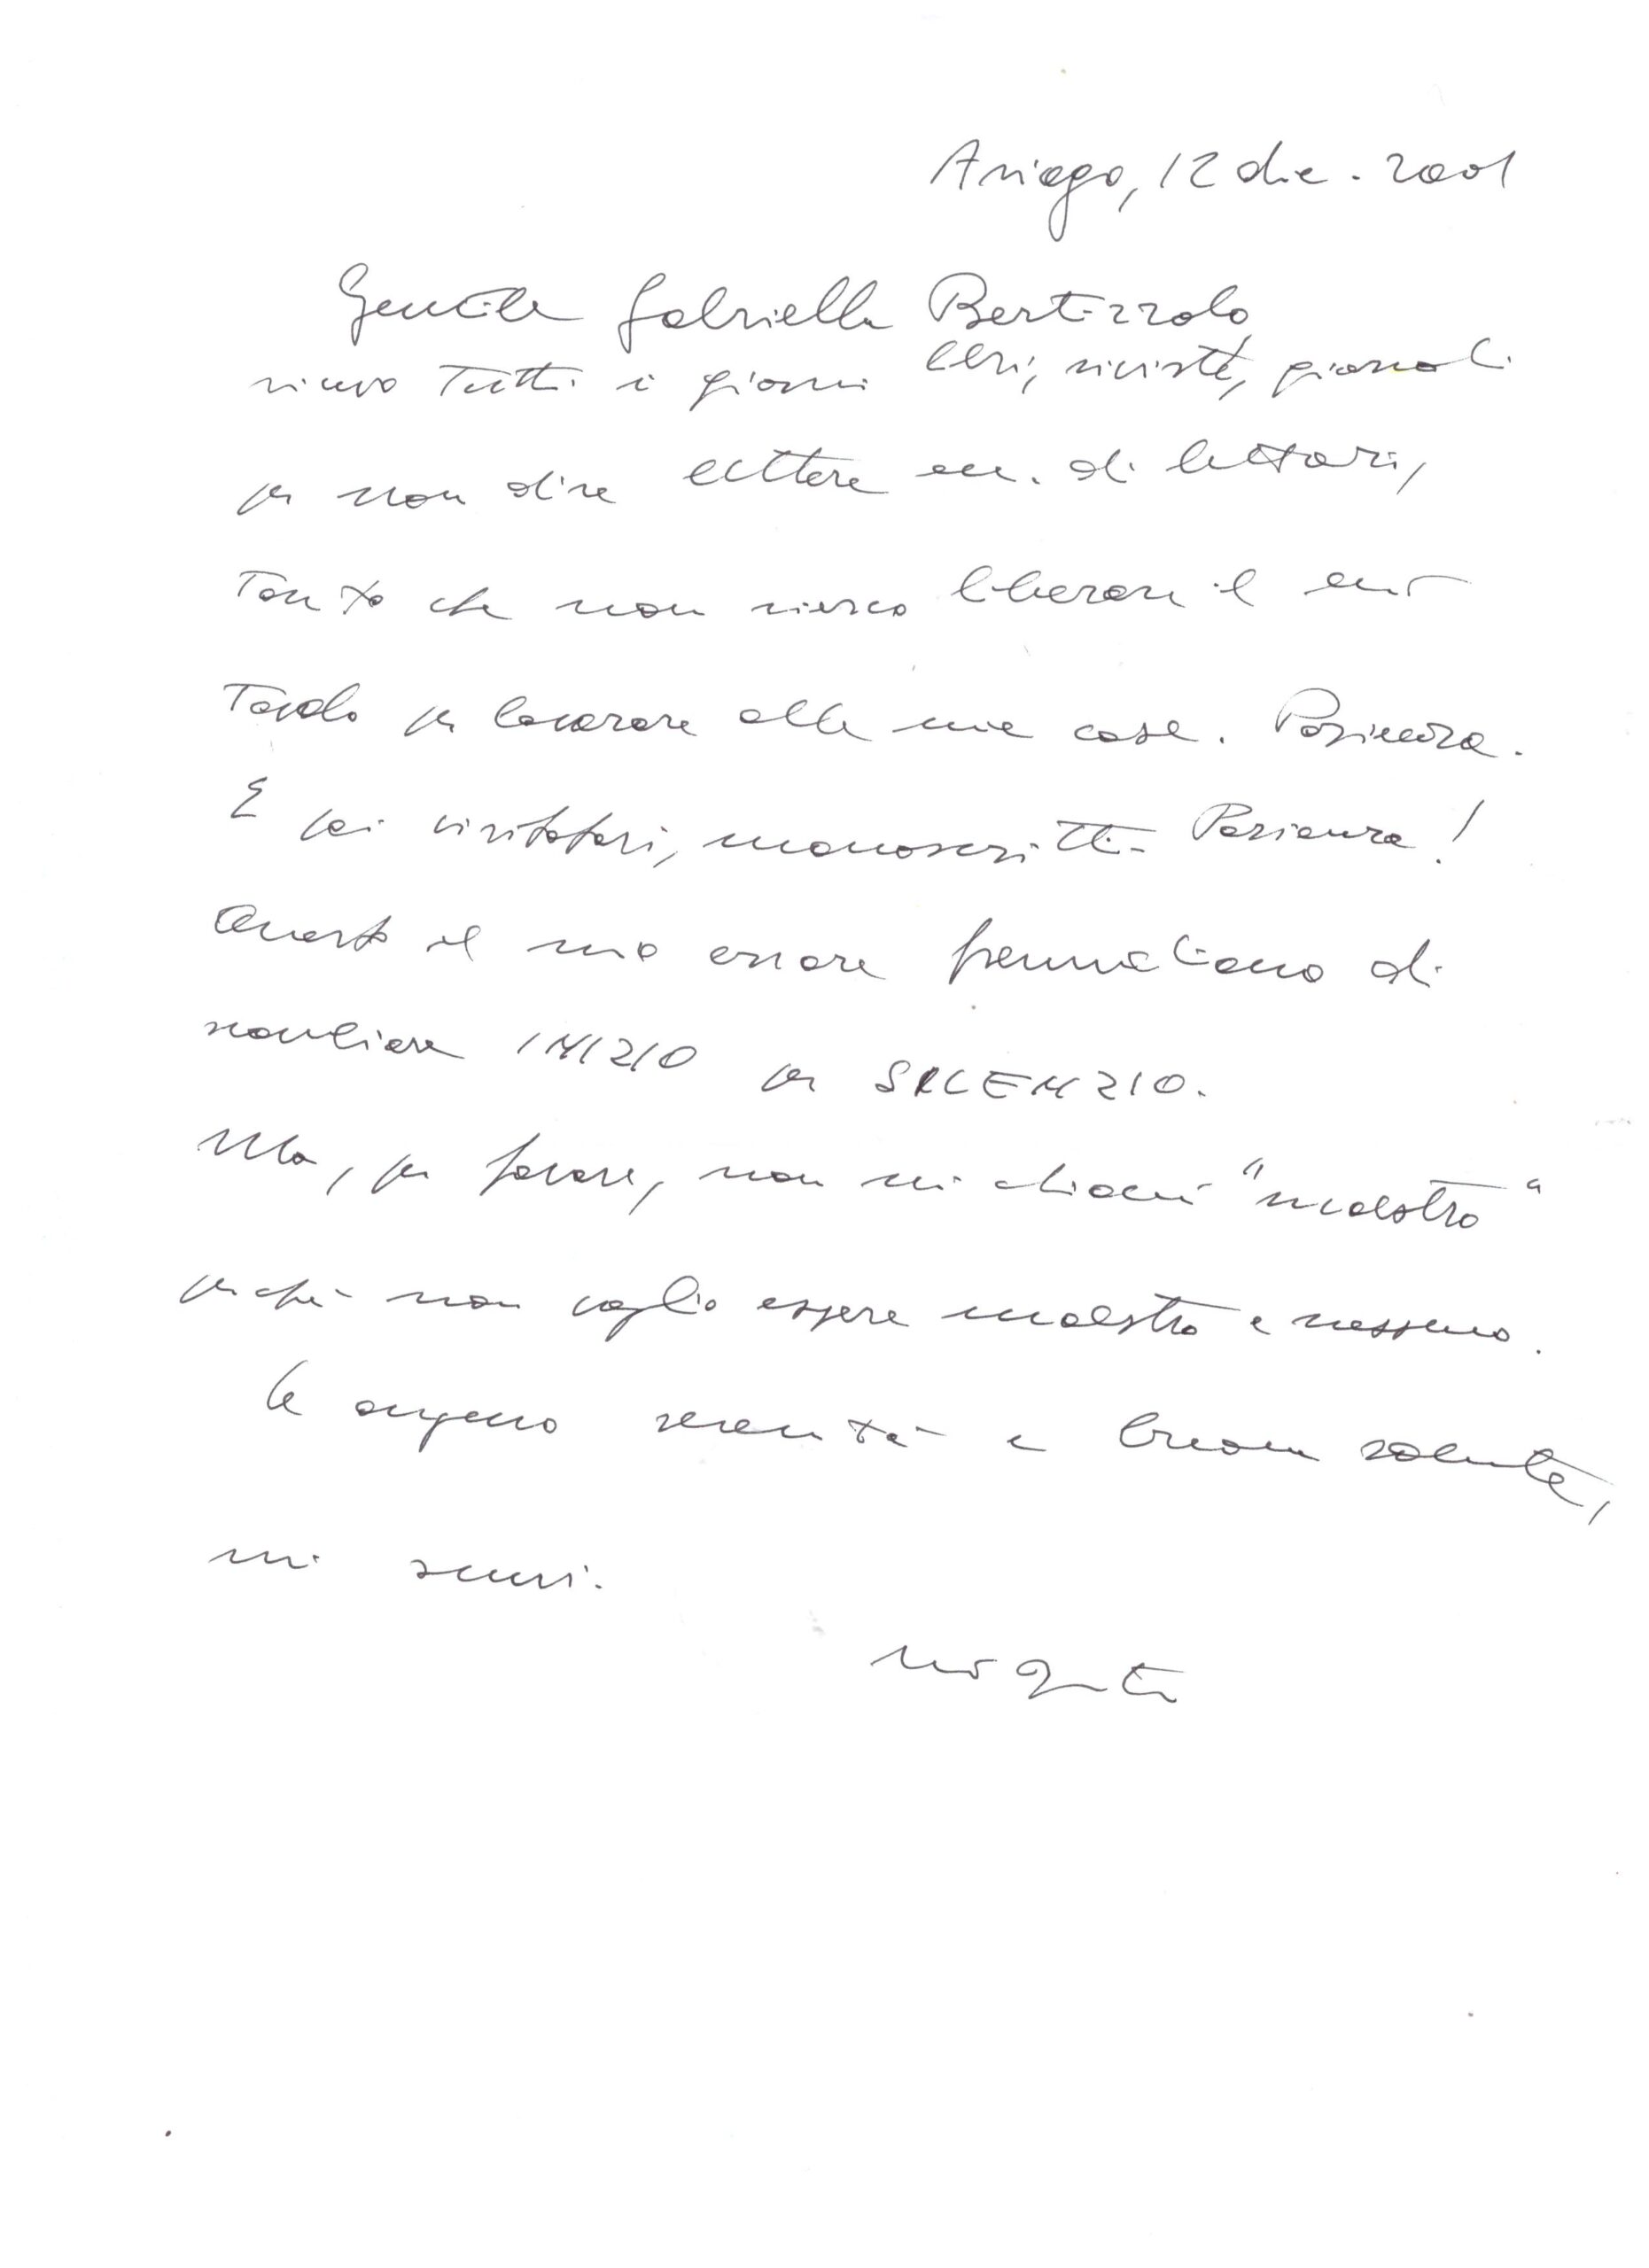 Asiago, 12 dic. 2001
Gentile Gabriella Bertizzolo,
ricevo tutti i giorni libri, riviste, giornali
per non dire lettere ecc. di lettori,
tanto che non riesco liberare il mio
tavolo per lavorare alle mie cose. Pazienza.
E poi visitatori, manoscritti. Pazienza!
Questo il mio errore
scambiare INIZIO per SILENZIO.
Ma, per favore, non mi chiami "maestro"
perché non voglio essere maestro a nessuno.
Le auguro serenità e buona salute,
mi scusi.